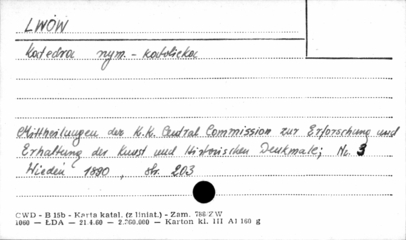 LWÓW
Katedra rzym. - katolicka
Mittheilungen der K.K. Central Commission zur Erforschung und
Erhaltung der Kunst und Historischen Denkmale; Nr. 3
Wiedeń 1890, str. 203
CWD - B 15b - Karta katal. (z liniat.) - Zam. 786/ZW
1060 — ŁDA — 21.4.60 — 2.760.000 — Karton kl. III A1 160 g